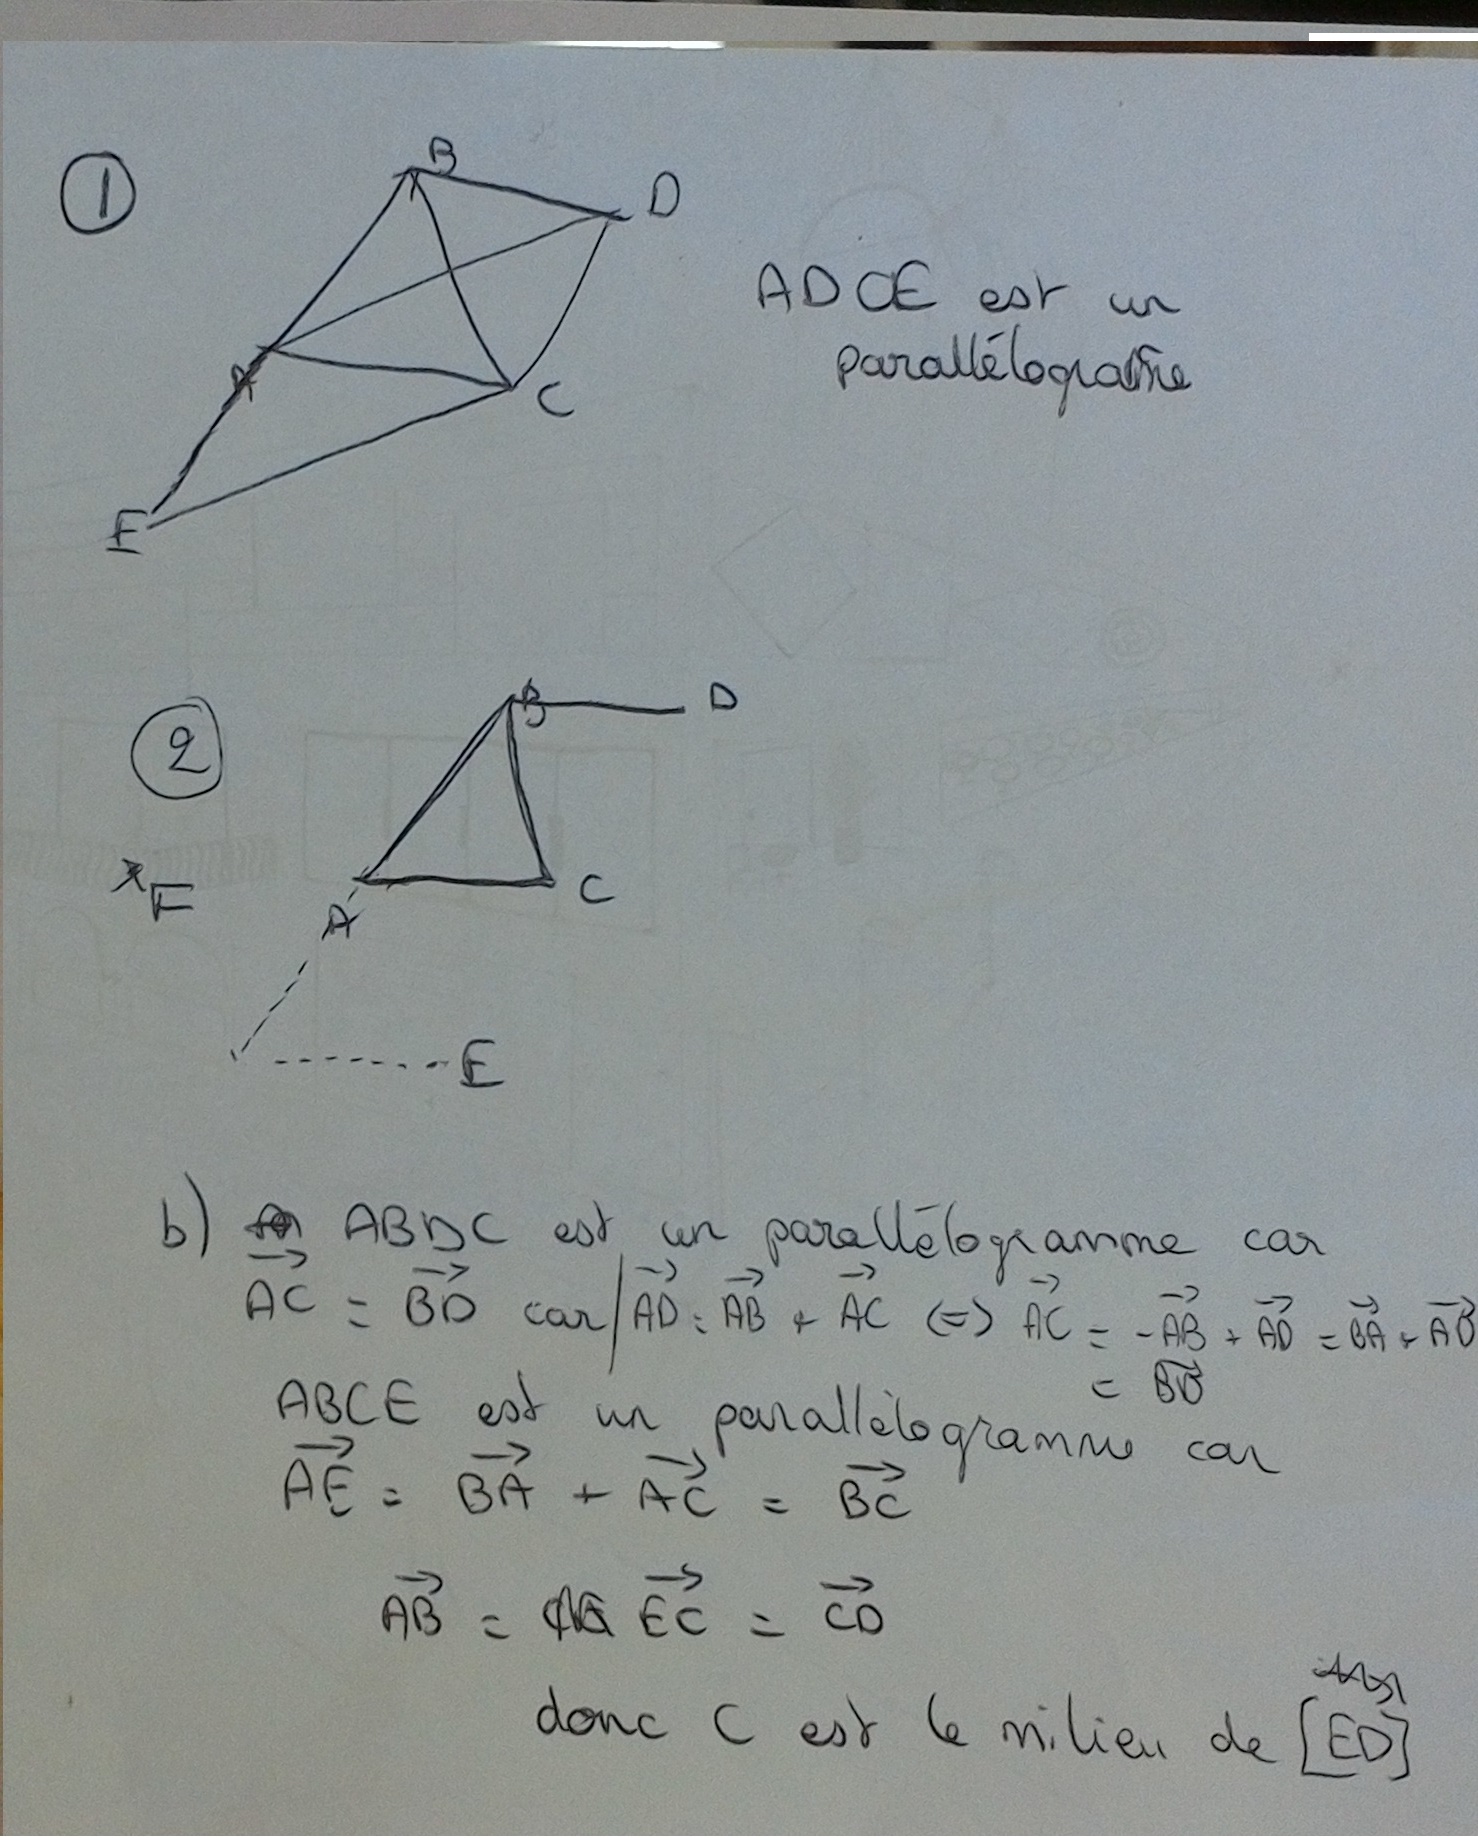 ①
B
D
A
C
E
ADCE est un
parallélogramme
②
B
D
F
A
C
E
b) ABDC est un parallélogramme car
→AC = →BD car / →AD = →AB + →AC (=) →AC = -→AB + →AD = →BA + →AD
= →BD
ABCE est un parallèlogramme car
→AE = →BA + →AC = →BC
→AB = →EC = →CD
donc C est le milieu de [ED]